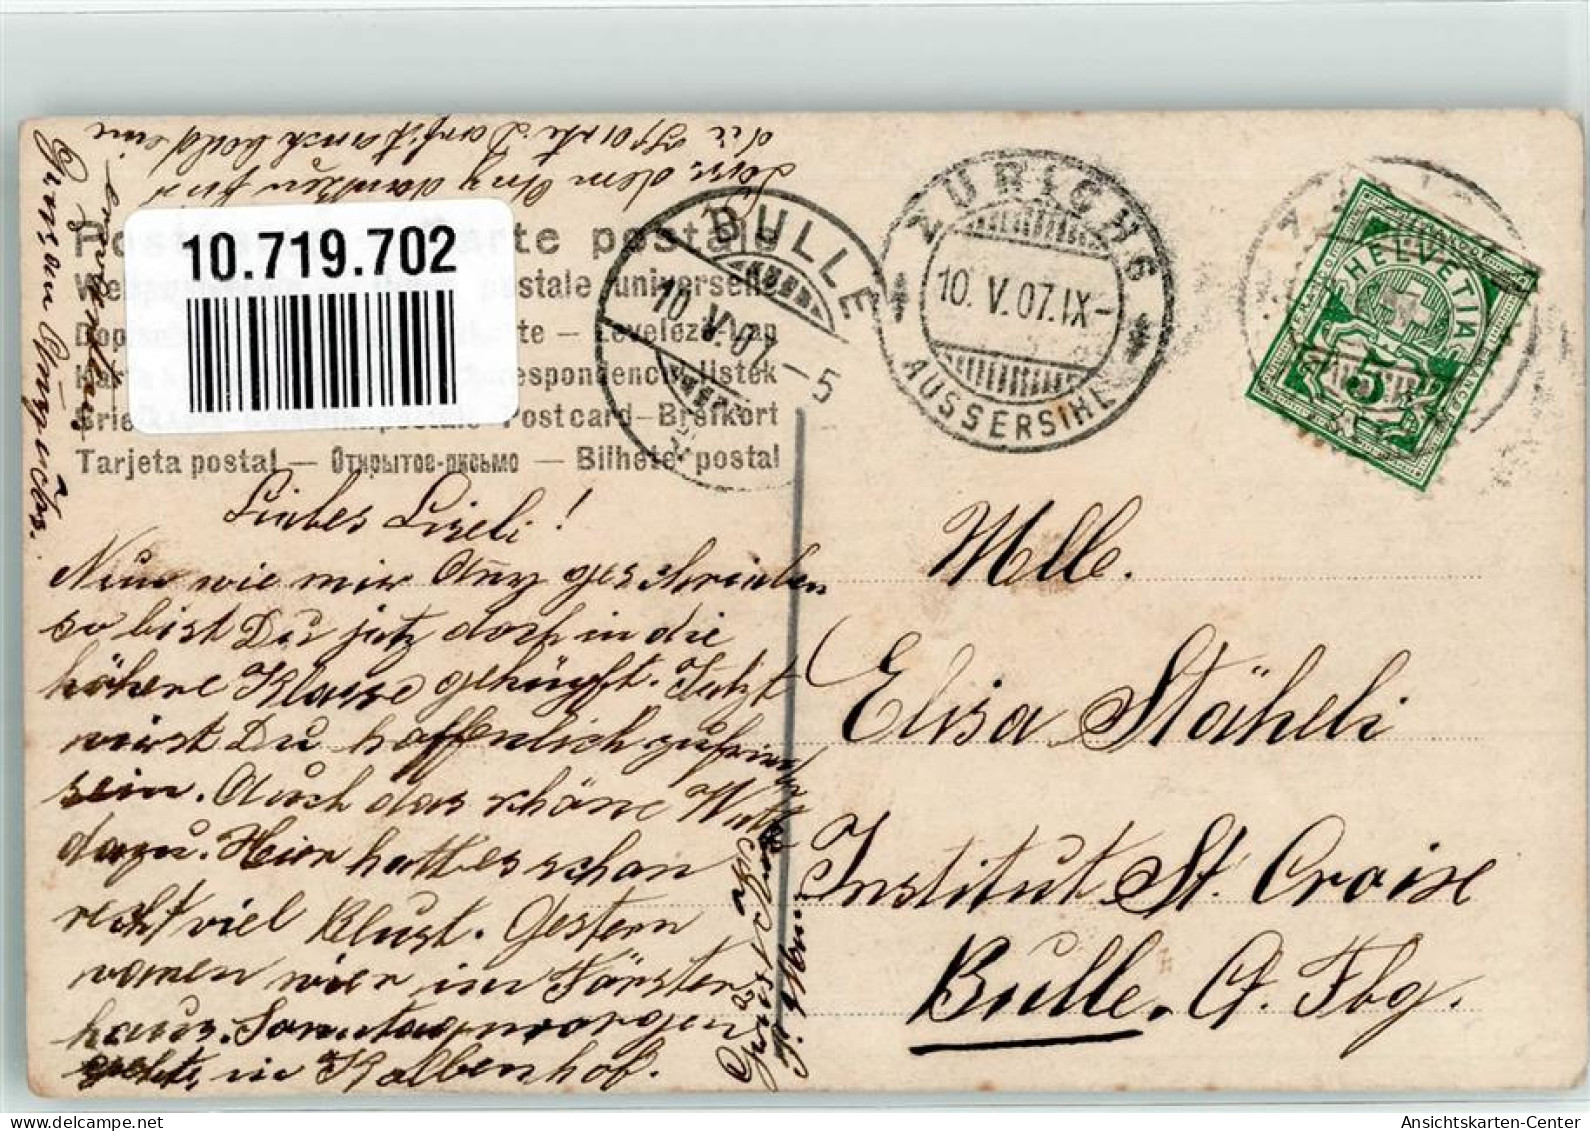 10.719.702
arte postale
We postale universelle
Dop te – Levelező-Lap
Karta respondenční listek
Brie Postcard–Brefkort
Tarjeta postal — Открытое-письмо — Bilhete postal
BULLE
10.V.07.–5
ZÜRICH 6
10. V. 07. IX–
AUSSERSIHL
HELVETIA
5
Liebes Liseli!
Nun wie mir Anny geschrieben
so bist Du jetz doch in die
höhere Klasse gehüpft. Jetzt
wirst Du hoffenlich zufried
sein. Auch das schöne Wett
dazu. Hier hattes schon
recht viel Blust. Gestern
waren wier im Förster
haus. Sonntagmorgen
gehts in Kalbenhof.
Mlle.
Elisa Stäheli
Institut St. Croix
Bulle. Ct. Fbg.
Ansichtskarten-Center